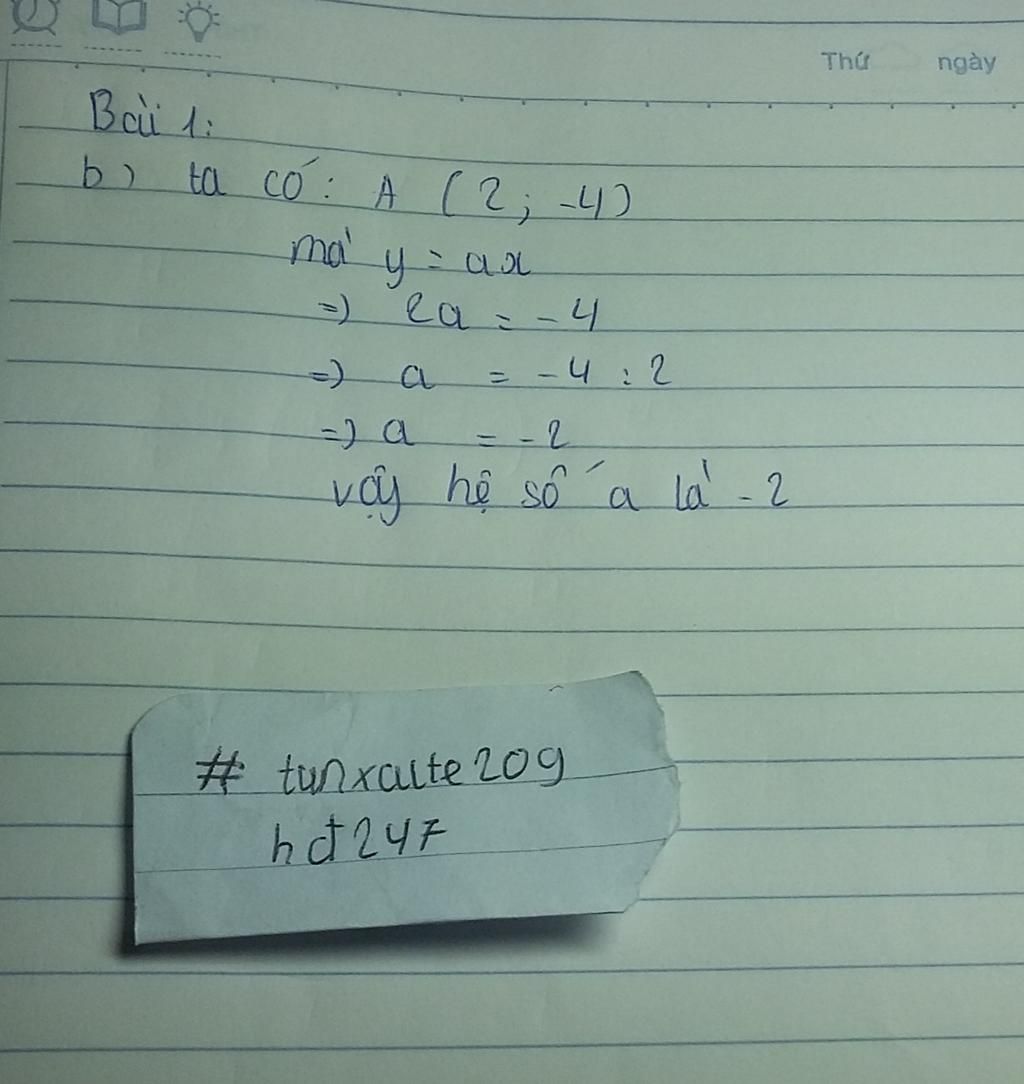 Thứ ngày
Bài 1:
b) ta có: A (2; -4)
mà y = ax
=) 2a = -4
=) a = -4 : 2
=) a = -2
vậy hệ số a là -2
# tunxaite209
hdt247